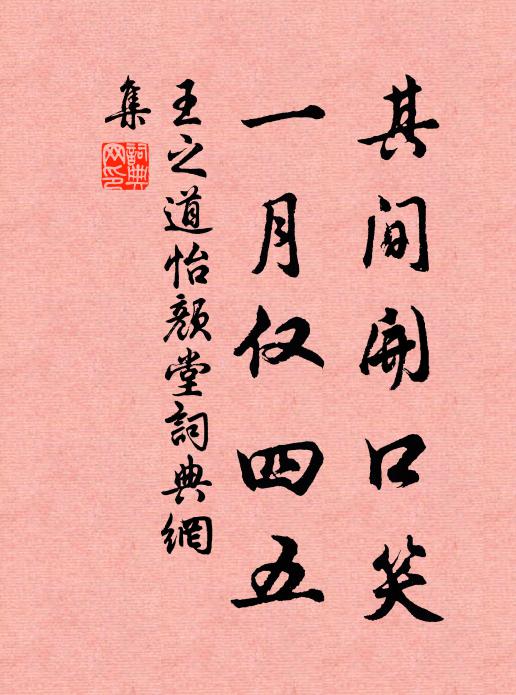 其间开口笑
一月仅四五
王之道怡颜堂詞典網
集
詞典
网印